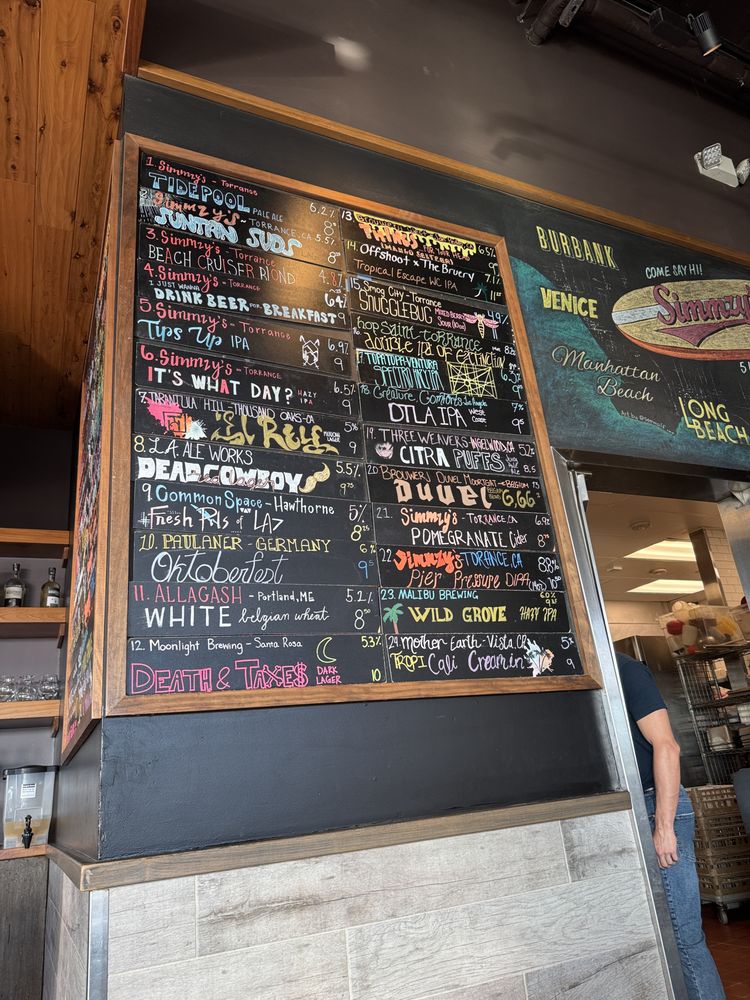 1. Simmzy's - Torrance
TIDEPOOL PALE ALE 6.2%
8
Simmzy's - TORRANCE, CA 5.5%
SUNTAN SUDS 8
3. Simmzy's - Torrance 4.8%
BEACH CRUISER BLOND
4. Simmzy's - TORRANCE
I JUST WANNA
DRINK BEER FOR BREAKFAST 9
5. Simmzy's - TORRANCE 6.9%
Tips Up IPA 9
6. Simmzy's - TORRANCE 6.5%
IT'S WHAT DAY? HAZY IPA 9
7. TARANTULA HILL - THOUSAND OAKS - CA 5%
LAGER 9
8. L.A. ALE WORKS 5.5%
DEAD COWBOY
9. Common Space - Hawthorne 5%
#Fresh Pils of LAX 8
10. PAULANER - GERMANY 6%
Oktoberfest 9
11. ALLAGASH - Portland, ME 5.2%
WHITE belgian wheat 8
12. Moonlight Brewing - Santa Rosa 5.3%
DEATH & TAXE$ DARK LAGER 10
13 6.5%
14. Offshoot x The Bruery 7.1%
Tropical Escape WC IPA
15. Smog City - Torrance 4.9%
SNUGGLEBUG
Hop Saint - torrance
double ipa of extinction
TOPA TOPA VENTURA
18. Creature Comforts Los Angeles 7%
DTLA IPA West Coast 9
19. THREE WEAVERS - INGLEWOOD, CA 5.2%
CITRA PUFFS 8.5
20. BROUWERIJ DUVEL MOORTGAT - BELGIUM
Duvel 6.66
21. Simmzy's - TORRANCE, CA 6.9%
POMEGRANATE Cider 8
22. Simmzy's TORANCE, CA 8.8%
Pier Pressure DIPA
23. MALIBU BREWING 6.0%
WILD GROVE HAZY IPA
24. Mother Earth - Vista, CA 5%
TROPI Cali Creamin' 9
BURBANK
COME SAY HI!
VENICE
Simmzy's
Manhattan
Beach
LONG
BEACH